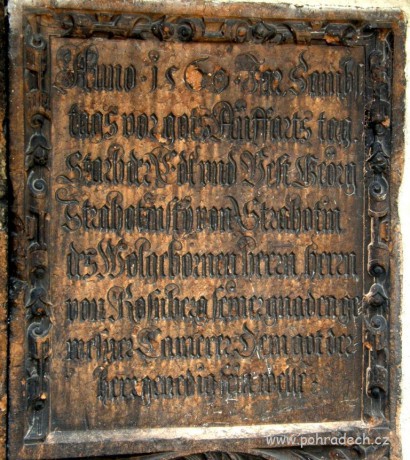 Anno · 1560 · Der Sambs
tags vor gots Auffarts tag
Starb der Edl und Vest Georg
von Strahotin
des Wolgebornen herrn herrn
von Rosnberg seiner gnaden ge
wesner Camerer Dem got der
herr genedig sein welle ·
www.pohradech.cz